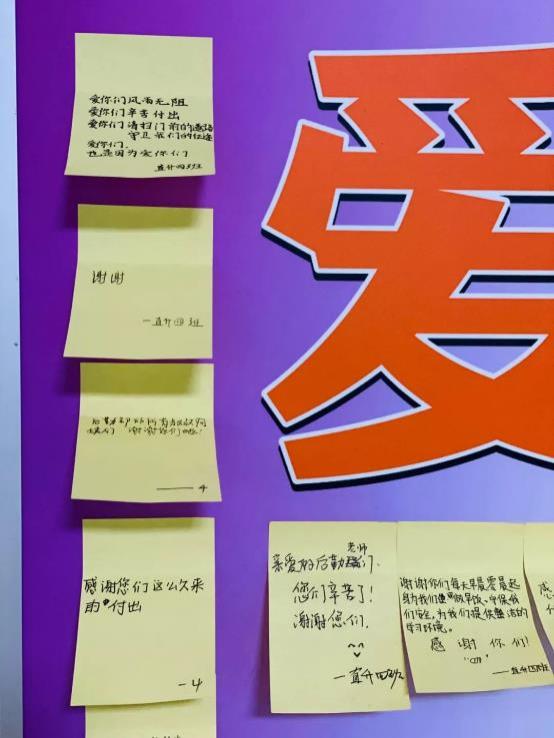 爱你们风雨无阻
爱你们辛苦付出
爱你们清扫门前的道路
守卫我们的征途
爱你们,
也是因为爱你们
直升四班
谢谢
一直升四班
谢谢你们啦!
—— 4
感谢您们这么久来
的付出
-4
爱
老师
亲爱的后勤们.
您们辛苦了!
谢谢您们.
一直升四班
谢谢你们每天早晨零晨起
身为我们做早饭、守候我
们安全,为我们提供整洁的
学习环境。
感谢你们!
——直升四班
感